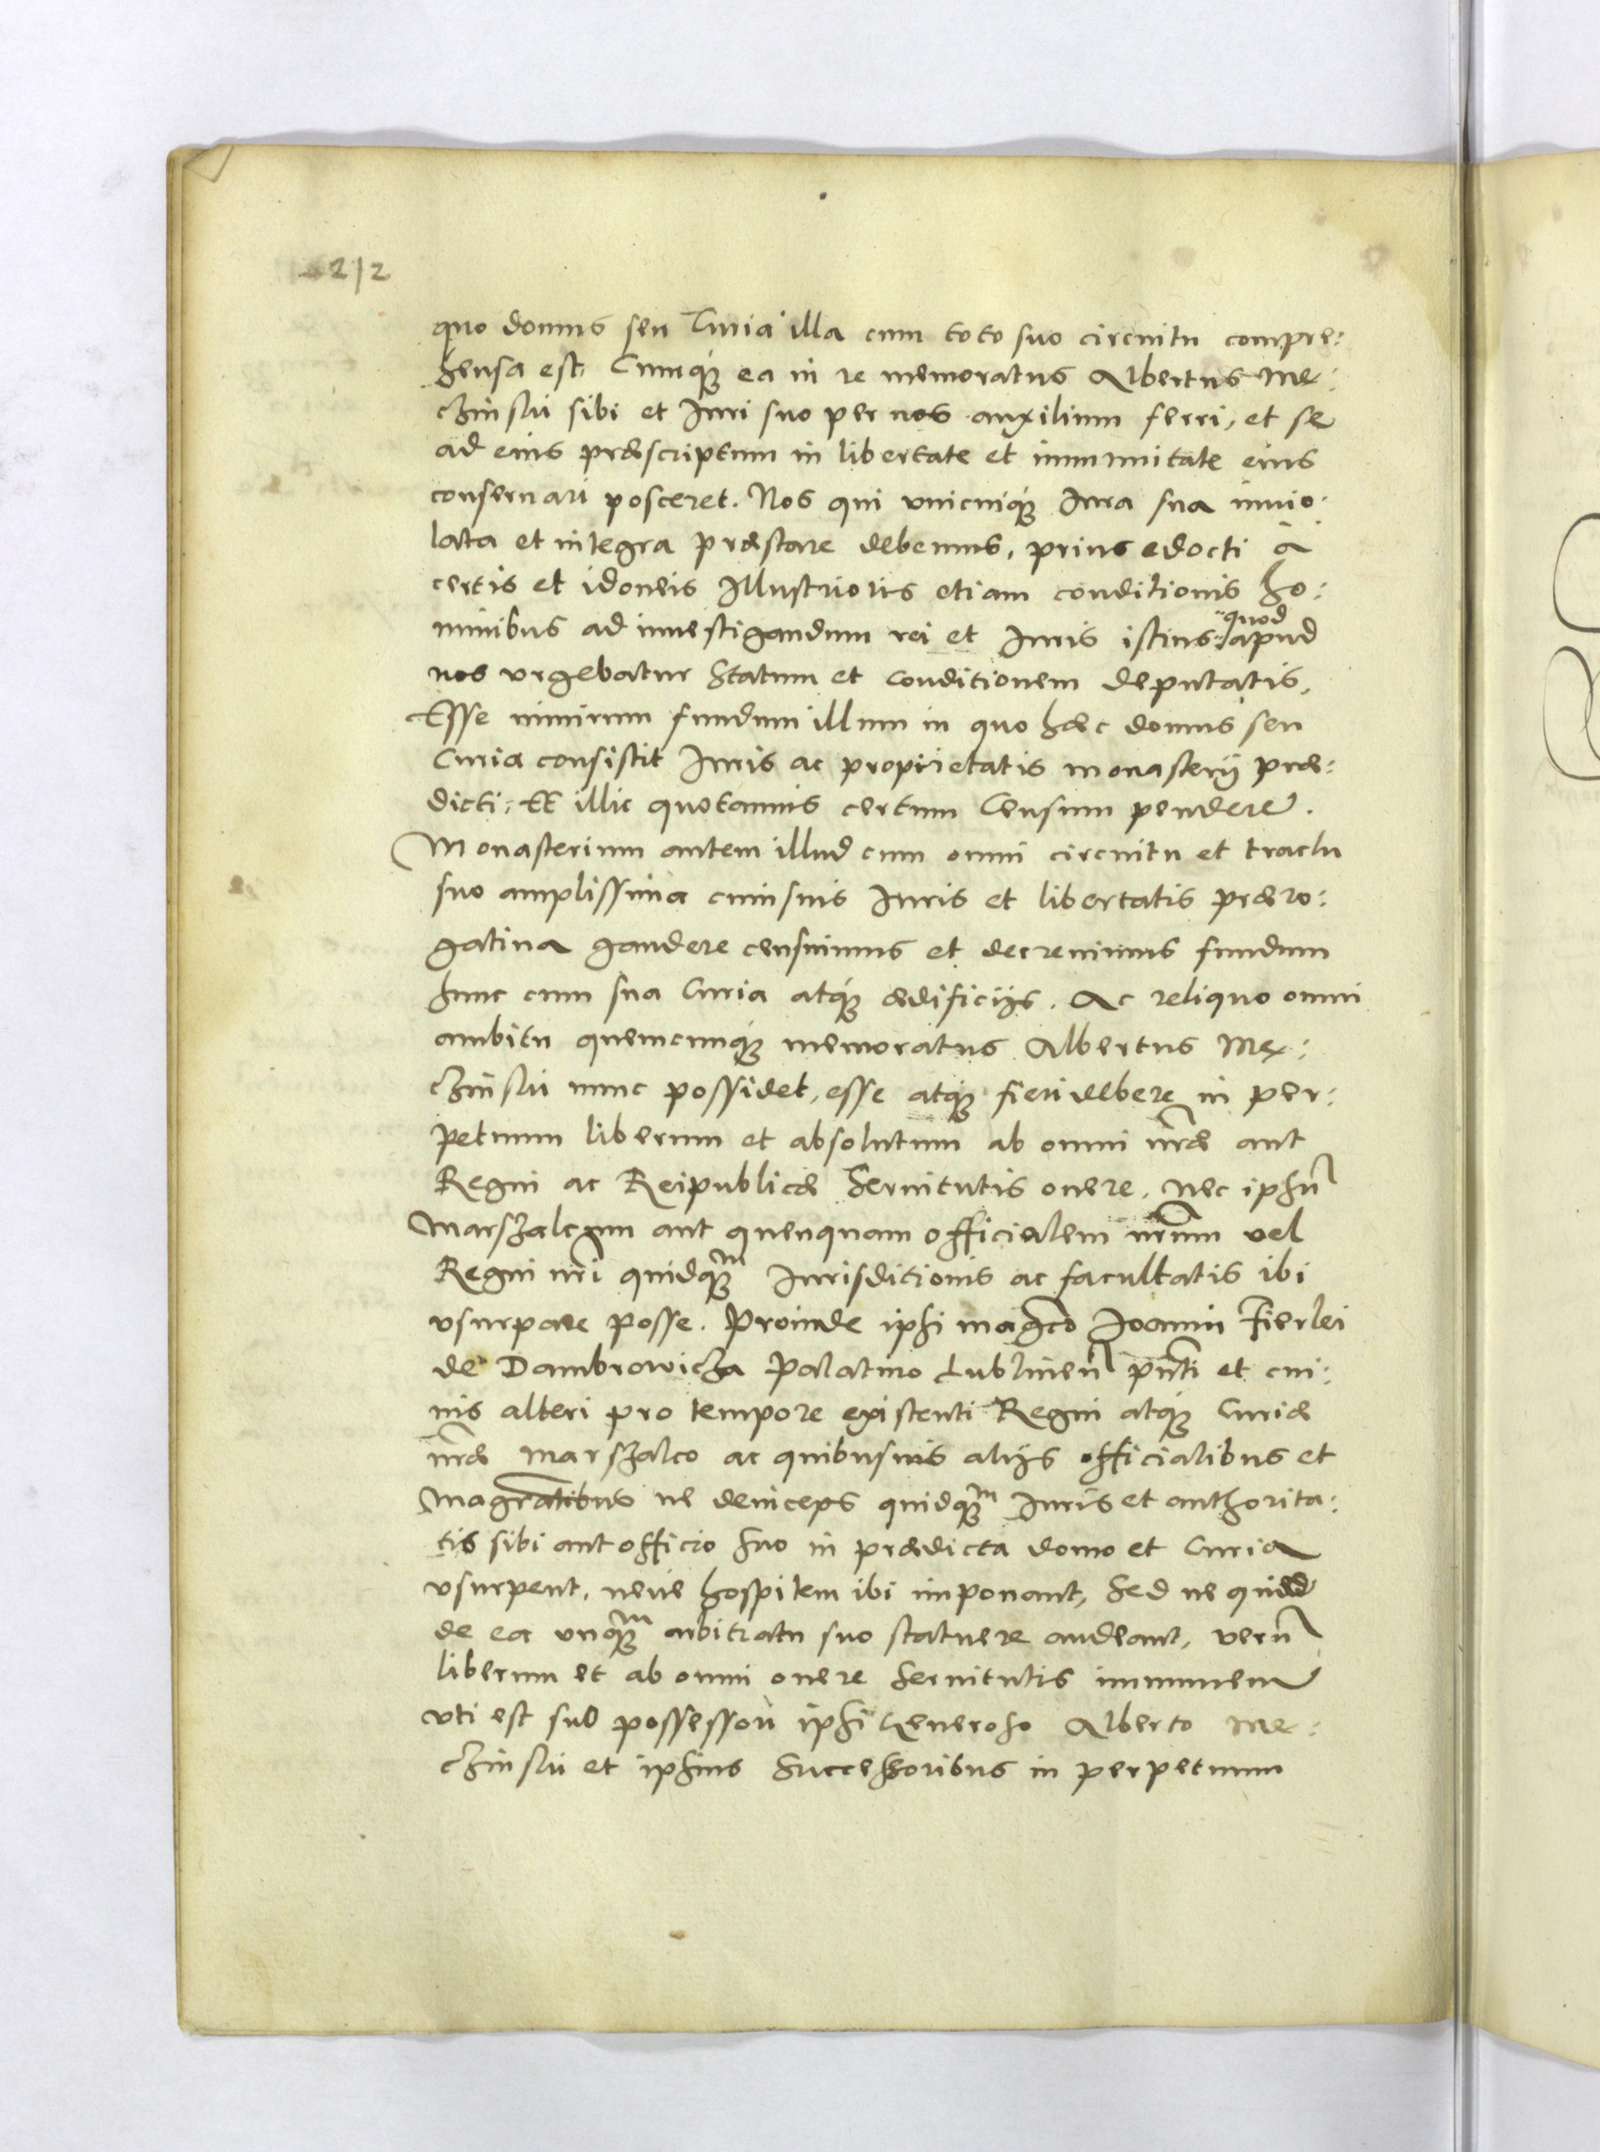 212
quo domus seu Curia illa cum toto suo circuitu compre:
hensa est. Cumq́ꝫ ea in re memoratus Albertus Me:
czinski sibi et Iuri suo per nos auxilium ferri, et se
ad eius præscriptum in libertate et immunitate eius
conseruari posceret. Nos qui vnicuiq́ꝫ Iura sua inuio:
lata et integra præstare debemus, prius edocti à
certis et idoneis Illustrioris etiam conditionis ho:
minibus ad inuestigandum rei et Iuris istius quod apud
nos vrgebatur Statum et conditionem deputatis,
Esse nimirum fundum illum in quo hæc domus seu
Curia consistit Iuris ac proprietatis monasterij præ:
dicti, Et illic quotannis certum Censum pendere.
Monasterium autem illud cum omni circuitu et tractu
suo amplissima cuiusuis Iuris et libertatis præro:
gatiua gaudere censuimus et decreuimus fundum
hunc cum sua Curia atq́ꝫ ædificijs. Ac reliquo omni
ambitu quemcunq́ꝫ memoratus Albertus Me:
czinski nunc possidet, esse atq́ꝫ fieri debere in per:
petuum liberum et absolutum ab omni nr̃æ aut
Regni ac Reipublicæ Seruitutis onere, nec ipsũ
Marszalcum aut quenquam officialem nr̃um vel
Regni nr̃i quidq́ꝫm Iurisditionis ac facultatis ibi
vsurpare posse. Proinde ipsi mag̃co Ioanni Fierlei
de Dambrowicza Palatino Lublineñ pñti et cui:
uis alteri pro tempore existenti Regni atq́ꝫ Curiæ
nr̃æ Marszalco ac quibusuis alijs officialibus et
magr̃atibus ne deinceps quidq́ꝫm Iuris et authorita:
tis sibi aut officio suo in prædicta domo et Curia
vsurpent, neue hospitem ibi imponant, Sed ne quid
de ea vnq́ꝫm arbitratu suo statuere audeant, verũ
liberum et ab omni onere Seruitutis immunem
vti est sub possessori ipsi Generoso Alberto Me:
czinski et ipsius Successoribus in perpetuum